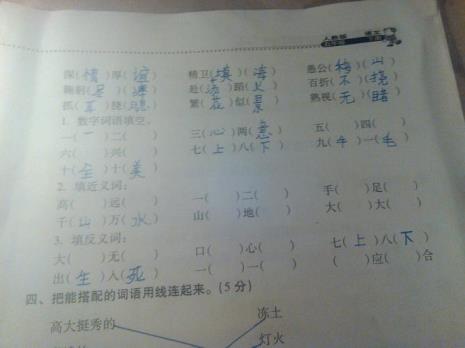 人教版 语文
五年级 下册
深(情)厚(谊) 精卫(填)(海) 愚公(移)(山)
鞠躬(尽)(瘁) 赴(汤)蹈(火) 百折(不)(挠)
抓( )挠( ) 繁(花)似(景) 熟视(无)(睹)
1. 数字词语填空。
一(一)二( ) 三(心)两(意) 五( )四( )
六( )兴( ) 七(上)八(下) 九(牛)一(毛)
十(全)十(美)
2. 填近义词:
高( )远( ) 一( )二( ) 手( )足( )
千(山)万(水) 山( )地( ) 大( )大( )
3. 填反义词:
大( )无( ) 口( )心( ) 七(上)八(下)
出(生)入(死) 一( )一( ) ( )应( )合
四、把能搭配的词语用线连起来。(5分)
高大挺秀的 冻土
灯火